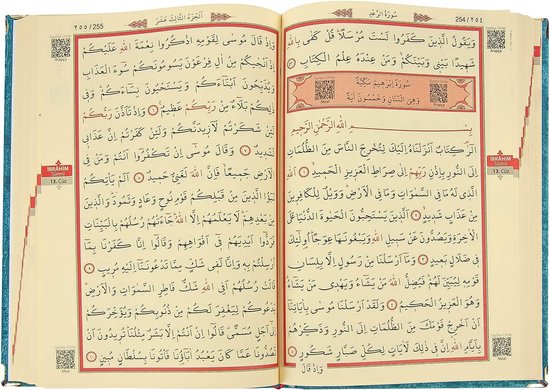 سُورَةُ الرَّعْدِ 254 / ٢٥٤
وَيَقُولُ الَّذِينَ كَفَرُوا لَسْتَ مُرْسَلًا قُلْ كَفٰى بِاللّٰهِ
شَهِيدًا بَيْنِي وَبَيْنَكُمْ وَمَنْ عِنْدَهُ عِلْمُ الْكِتَابِ
سُورَةُ اِبْرٰهِيمَ مَكِّيَّةٌ
وَهِيَ اثْنَتَانِ وَخَمْسُونَ اٰيَةً
بِسْمِ اللّٰهِ الرَّحْمٰنِ الرَّحِيمِ
الٓرٰ كِتَابٌ اَنْزَلْنَاهُ اِلَيْكَ لِتُخْرِجَ النَّاسَ مِنَ الظُّلُمَاتِ
اِلَى النُّورِ بِاِذْنِ رَبِّهِمْ اِلٰى صِرَاطِ الْعَزِيزِ الْحَمِيدِ ١ اَللّٰهِ
الَّذِي لَهُ مَا فِي السَّمٰوَاتِ وَمَا فِي الْاَرْضِ وَوَيْلٌ لِلْكَافِرِينَ
مِنْ عَذَابٍ شَدِيدٍ ٢ اَلَّذِينَ يَسْتَحِبُّونَ الْحَيٰوةَ الدُّنْيَا عَلَى
الْاٰخِرَةِ وَيَصُدُّونَ عَنْ سَبِيلِ اللّٰهِ وَيَبْغُونَهَا عِوَجًا اُولٰٓئِكَ
فِي ضَلَالٍ بَعِيدٍ ٣ وَمَا اَرْسَلْنَا مِنْ رَسُولٍ اِلَّا بِلِسَانِ
قَوْمِهِ لِيُبَيِّنَ لَهُمْ فَيُضِلُّ اللّٰهُ مَنْ يَشَاءُ وَيَهْدِي مَنْ يَشَاءُ
وَهُوَ الْعَزِيزُ الْحَكِيمُ ٤ وَلَقَدْ اَرْسَلْنَا مُوسٰى بِاٰيَاتِنَا
اَنْ اَخْرِجْ قَوْمَكَ مِنَ الظُّلُمَاتِ اِلَى النُّورِ وَذَكِّرْهُمْ
بِاَيَّامِ اللّٰهِ اِنَّ فِي ذٰلِكَ لَاٰيَاتٍ لِكُلِّ صَبَّارٍ شَكُورٍ ٥
وَاِذْ قَالَ
İBRÂHİM
Sûresi
13. Cüz
اَلْجُزْءُ الثَّالِثُ عَشَرَ 255 / ٢٥٥
وَاِذْ قَالَ مُوسٰى لِقَوْمِهِ اذْكُرُوا نِعْمَةَ اللّٰهِ عَلَيْكُمْ
اِذْ اَنْجٰيكُمْ مِنْ اٰلِ فِرْعَوْنَ يَسُومُونَكُمْ سُوءَ الْعَذَابِ
وَيُذَبِّحُونَ اَبْنَاءَكُمْ وَيَسْتَحْيُونَ نِسَاءَكُمْ وَفِي
ذٰلِكُمْ بَلَاءٌ مِنْ رَبِّكُمْ عَظِيمٌ ٦ وَاِذْ تَاَذَّنَ رَبُّكُمْ
لَئِنْ شَكَرْتُمْ لَاَزِيدَنَّكُمْ وَلَئِنْ كَفَرْتُمْ اِنَّ عَذَابِي
لَشَدِيدٌ ٧ وَقَالَ مُوسٰى اِنْ تَكْفُرُوا اَنْتُمْ وَمَنْ فِي
الْاَرْضِ جَمِيعًا فَاِنَّ اللّٰهَ لَغَنِيٌّ حَمِيدٌ ٨ اَلَمْ يَاْتِكُمْ
نَبَؤُا الَّذِينَ مِنْ قَبْلِكُمْ قَوْمِ نُوحٍ وَعَادٍ وَثَمُودَ وَالَّذِينَ
مِنْ بَعْدِهِمْ لَا يَعْلَمُهُمْ اِلَّا اللّٰهُ جَاءَتْهُمْ رُسُلُهُمْ بِالْبَيِّنَاتِ
فَرَدُّوا اَيْدِيَهُمْ فِي اَفْوَاهِهِمْ وَقَالُوا اِنَّا كَفَرْنَا بِمَا
اُرْسِلْتُمْ بِهِ وَاِنَّا لَفِي شَكٍّ مِمَّا تَدْعُونَنَا اِلَيْهِ مُرِيبٍ ٩
قَالَتْ رُسُلُهُمْ اَفِي اللّٰهِ شَكٌّ فَاطِرِ السَّمٰوَاتِ وَالْاَرْضِ
يَدْعُوكُمْ لِيَغْفِرَ لَكُمْ مِنْ ذُنُوبِكُمْ وَيُؤَخِّرَكُمْ
اِلٰى اَجَلٍ مُسَمًّى قَالُوا اِنْ اَنْتُمْ اِلَّا بَشَرٌ مِثْلُنَا تُرِيدُونَ اَنْ
تَصُدُّونَا عَمَّا كَانَ يَعْبُدُ اٰبَاؤُنَا فَاْتُونَا بِسُلْطَانٍ مُبِينٍ ١٠
İBRÂHİM
Sûresi
13. Cüz